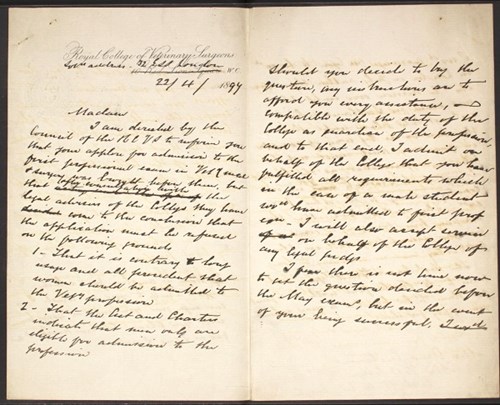 Royal College of Veterinary Surgeons
W.C.
22/4/1897
Madam
I am desired by the
Council of the RCVS to inform you
that your application for admission to the
first professional exam in Vet^y med
& surgery was brought before them, but
that the
legal advisers of the College they have
come to the conclusion that
the application must be refused
on the following grounds
1 - That it is contrary to long
usage and all precedent that
women should be admitted to
the Vet^y profession
2 - That the Act and Charters
indicate that men only are
eligible for admission to the
profession
Should you decide to try the
question, my instructions are to
afford you every assistance,
compatible with the duty of the
College as guardian of the profession
and to that end, I admit on
behalf of the College that you have
fulfilled all requirements which
in the case of a male student
w^d have admitted to first prof
exn - I will also accept service
on behalf of the College of
any legal
I fear there is not time now
to get the question decided before
the May exam^n, but in the event
of your being successful, I